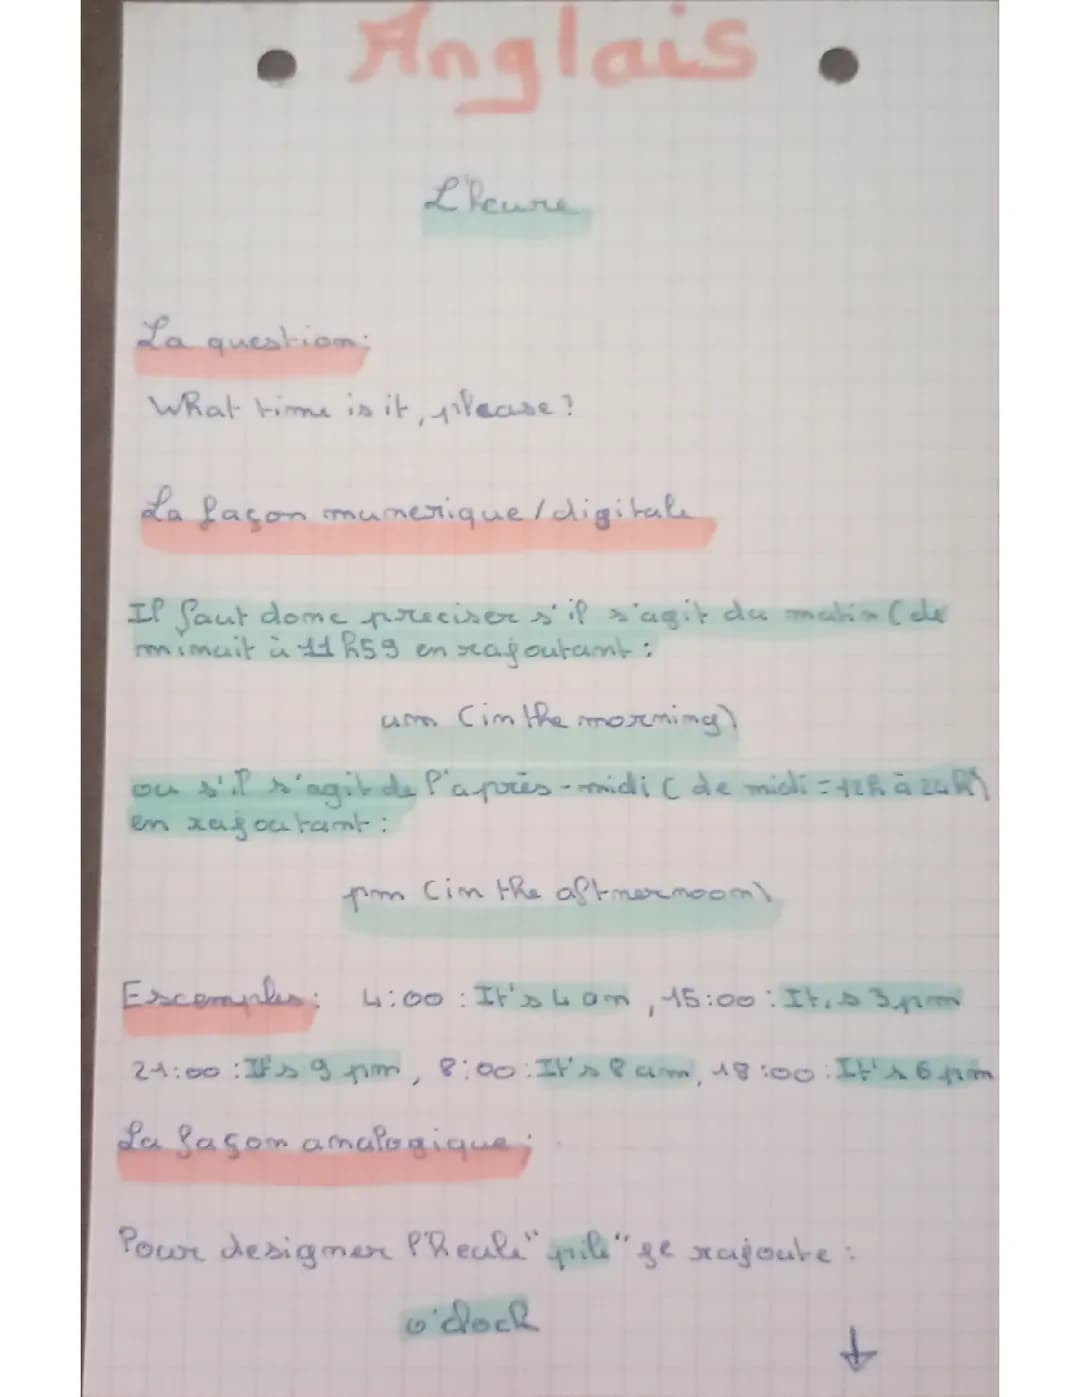 Anglais
L'heure
La question:
What time is it, please?
La façon numerique/digitale
Il faut donc preciser s'il s'agit du matin (de
minuit à 11h59 en rajoutant:
am (in the morning)
ou s'il s'agit de l'après-midi (de midi = 12h à 24h)
en rajoutant:
pm (in the afternernoon)
Escemples: 4:00 : It's 4 am, 15:00 : It,s 3 pm
21:00 : It's 9 pm, 8:00 : It's 8 am, 18:00 : It's 6 pm
La façon analogique:
Pour designer l'heule "pile" je rajoute :
o'clock